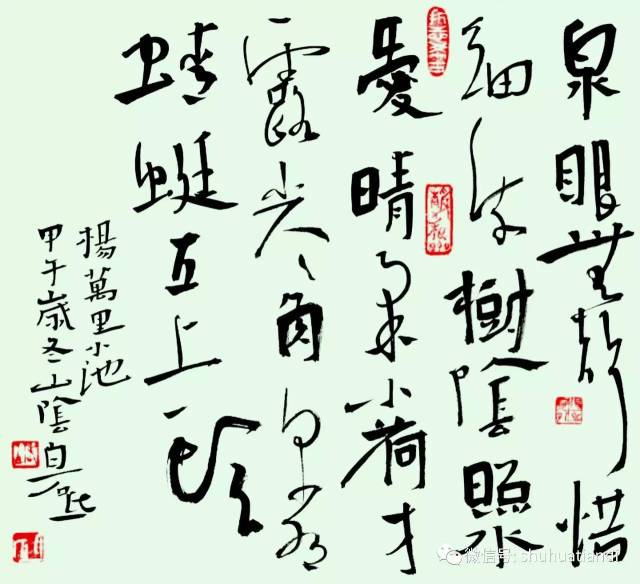 泉眼無聲惜
細流樹陰照水
愛晴柔小荷才
露尖々角早有
蜻蜓立上頭
楊萬里小池
甲午歲冬山陰
微信号: shuhuatiandi